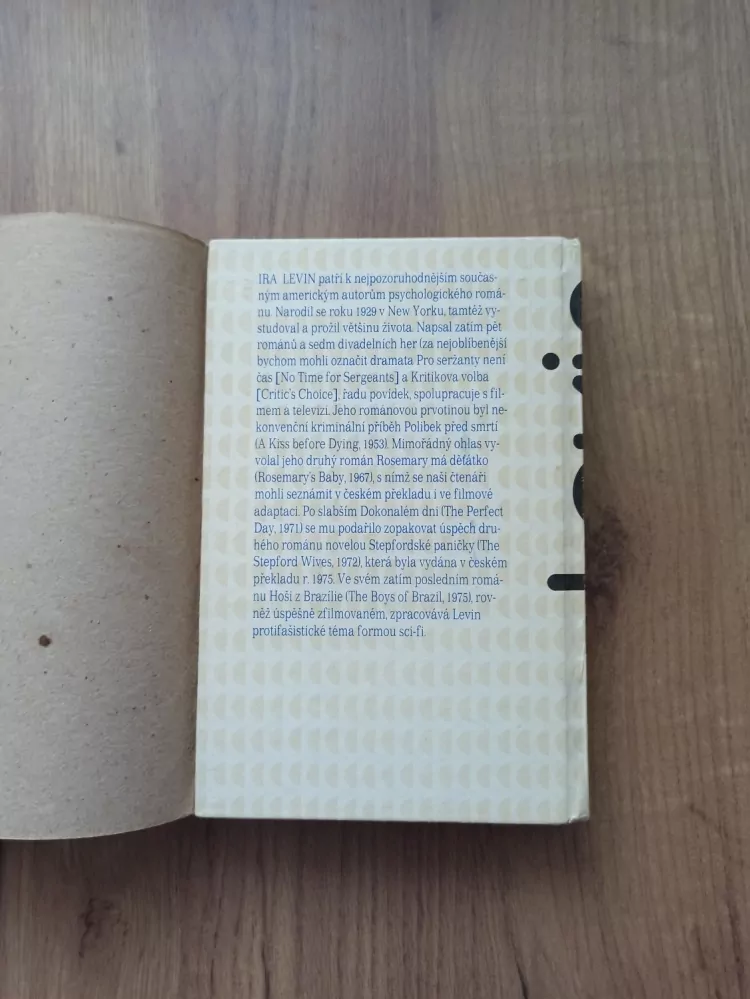 IRA LEVIN patří k nejpozoruhodnějším součas-
ným americkým autorům psychologického romá-
nu. Narodil se roku 1929 v New Yorku, tamtéž vy-
studoval a prožil většinu života. Napsal zatím pět
románů a sedm divadelních her (za nejoblíbenější
bychom mohli označit dramata Pro seržanty není
čas [No Time for Sergeants] a Kritikova volba
[Critic's Choice], řadu povídek, spolupracuje s fil-
mem a televizí. Jeho románovou prvotinou byl ne-
konvenční kriminální příběh Polibek před smrtí
(A Kiss before Dying, 1953). Mimořádný ohlas vy-
volal jeho druhý román Rosemary má děťátko
(Rosemary's Baby, 1967), s nímž se naši čtenáři
mohli seznámit v českém překladu i ve filmové
adaptaci. Po slabším Dokonalém dni (The Perfect
Day, 1971) se mu podařilo zopakovat úspěch dru-
hého románu novelou Stepfordské paničky (The
Stepford Wives, 1972), která byla vydána v českém
překladu r. 1975. Ve svém zatím posledním romá-
nu Hoši z Brazílie (The Boys of Brazil, 1975), rov-
něž úspěšně zfilmovaném, zpracovává Levin
protifašistické téma formou sci-fi.